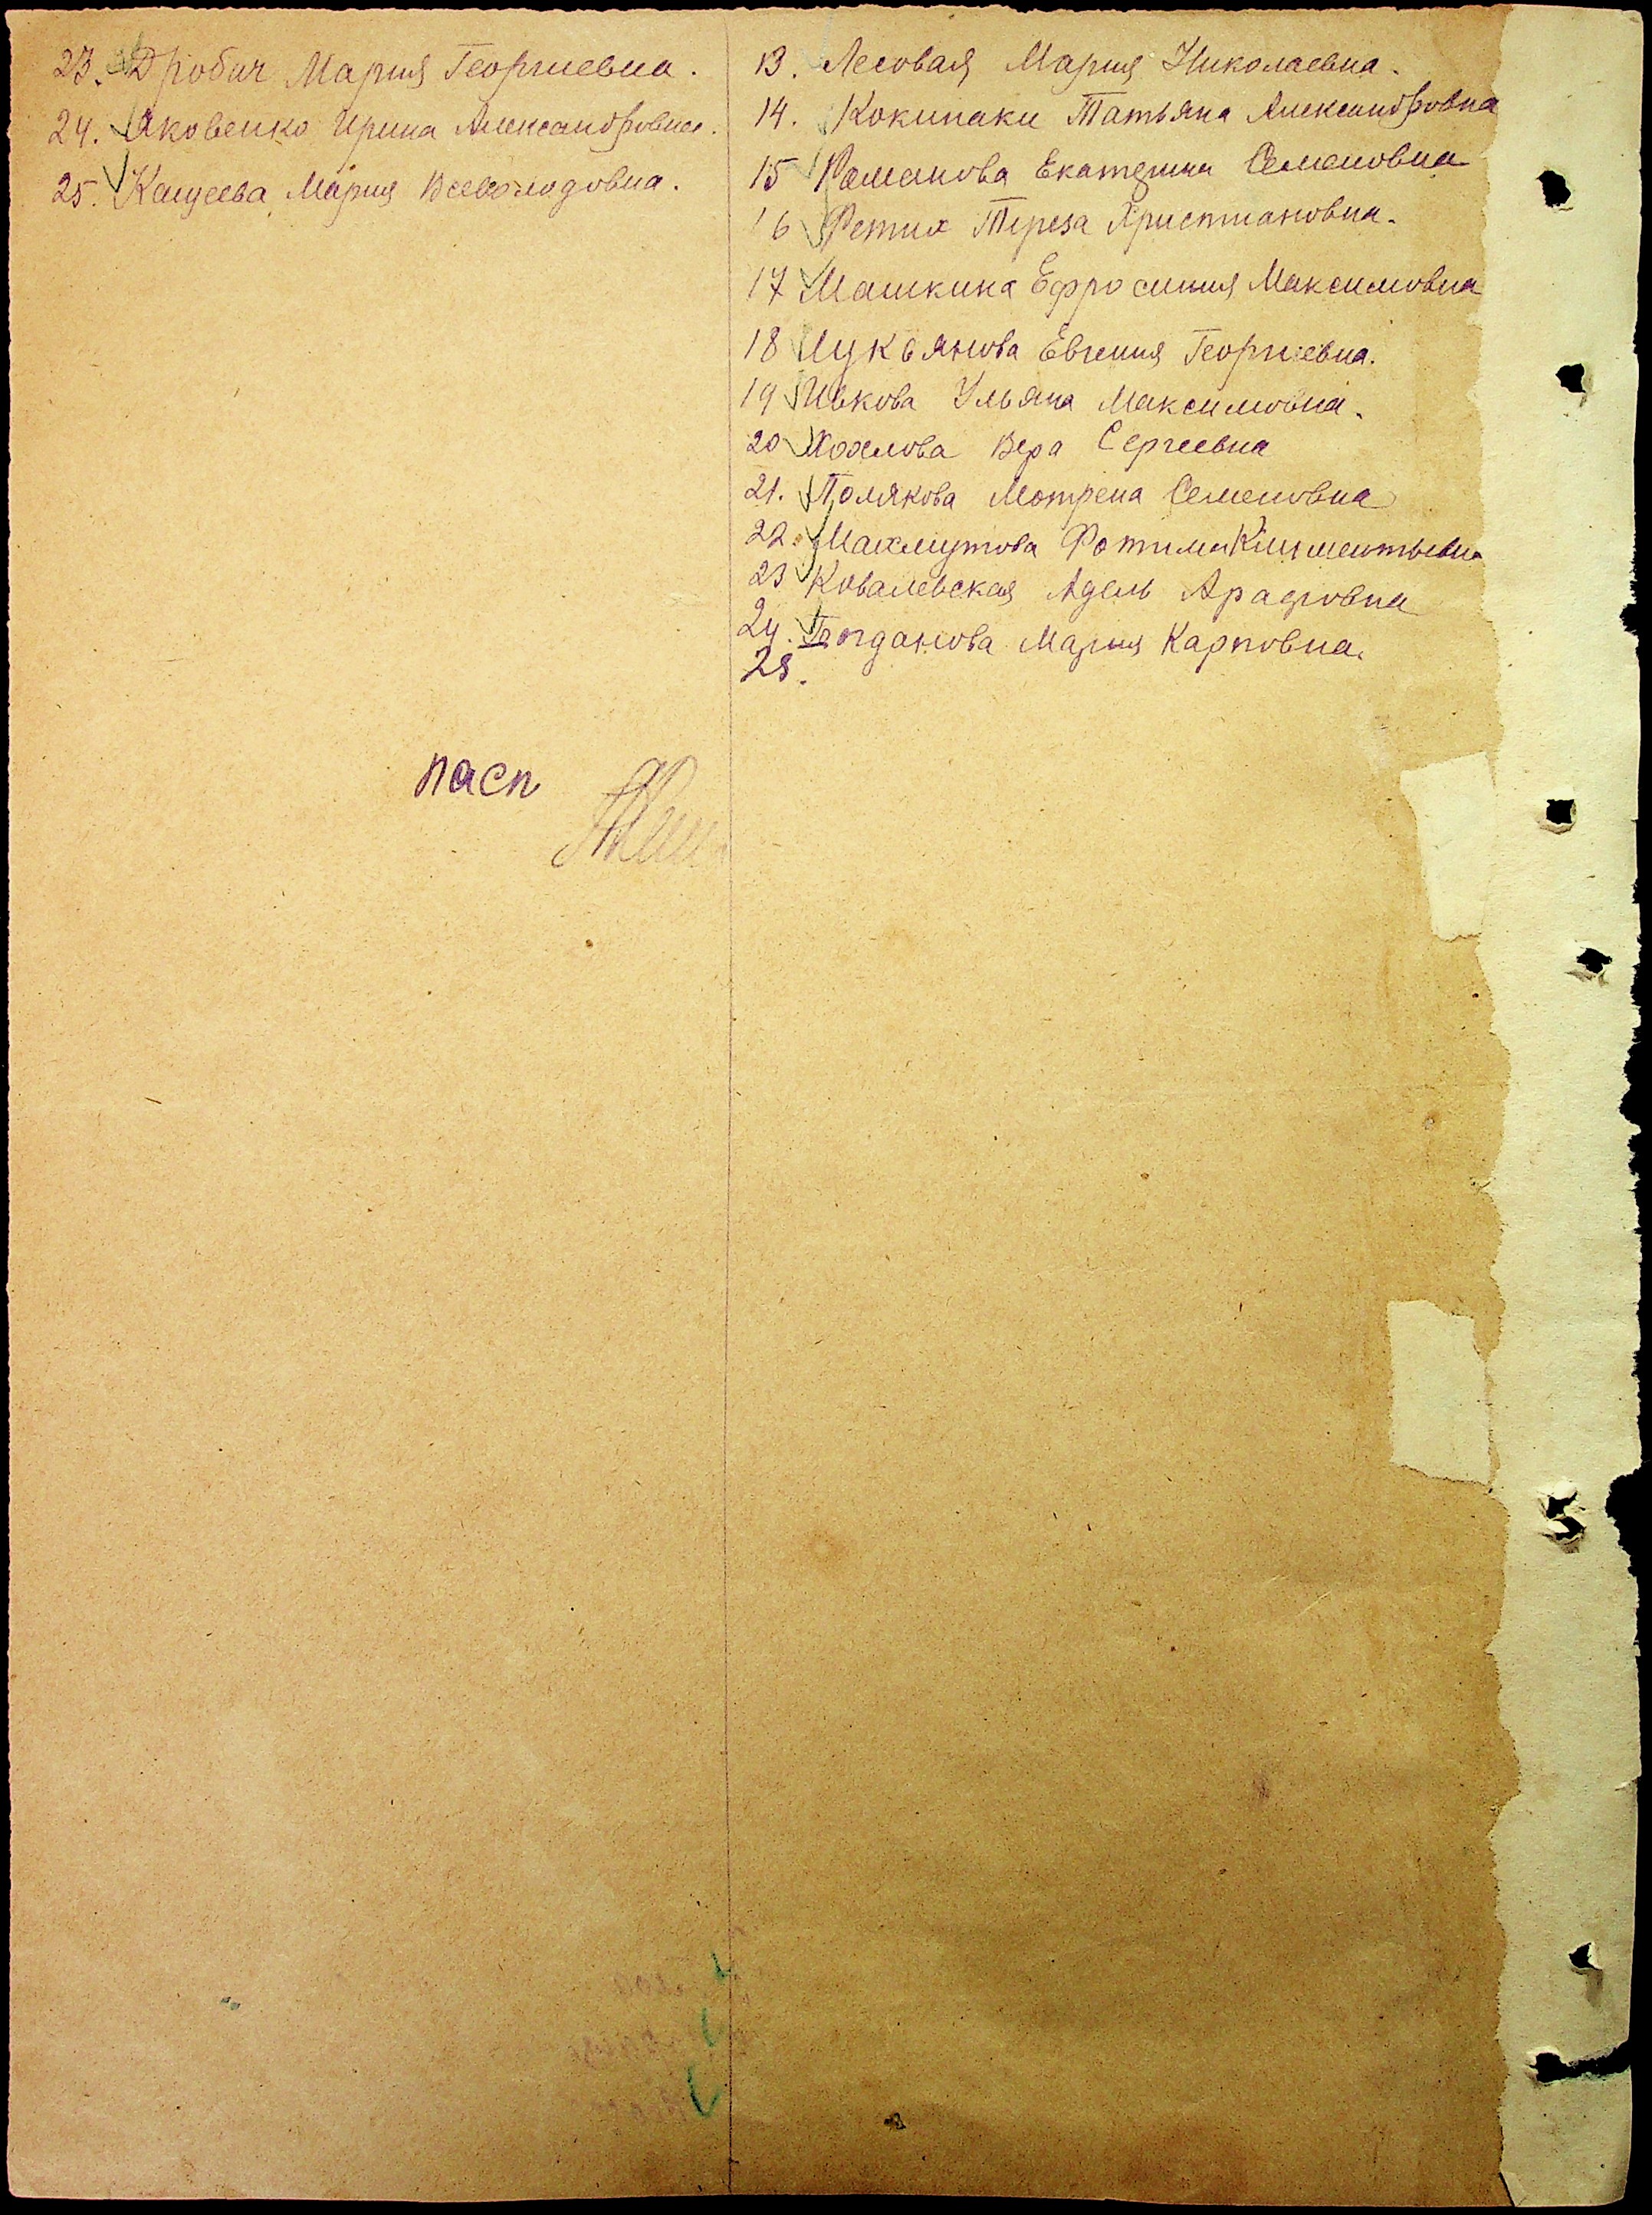 23. Дробич Мария Георгиевна.
24. Яковенко Ирина Александровна.
25. Кащеева Мария Всеволодовна.
пасп
13. Лесовая Мария Николаевна.
14. Кокинаки Татьяна Александровна
15 Романова Екатерина Семеновна
16 Ретих Тереза Христиановна.
17 Машкина Ефросиния Максимовна
18 Лукьянова Евгения Георгиевна.
19 Ивкова Ульяна Максимовна.
20 Хохлова Вера Сергеевна
21. Полякова Мотрена Семеновна
22. Махмутова Фотима Климентьевна
23 Ковалевская Адель
24. Богданова Мария Карповна.
25.